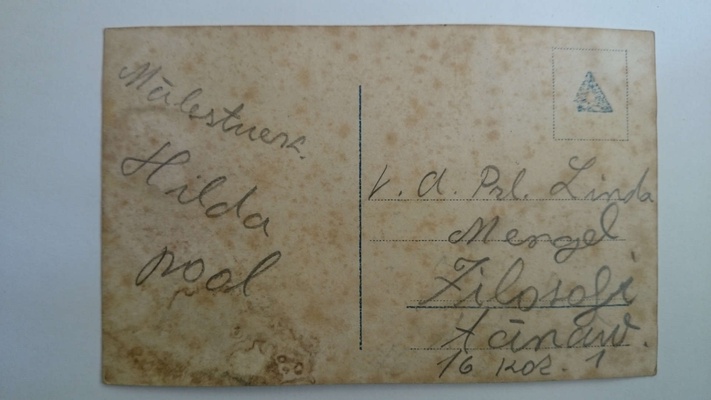 Mälestuseks.
Hilda
poolt
V. A. Prl. Linda
Mengel
Filosofi
tänav.
16 kor. 1